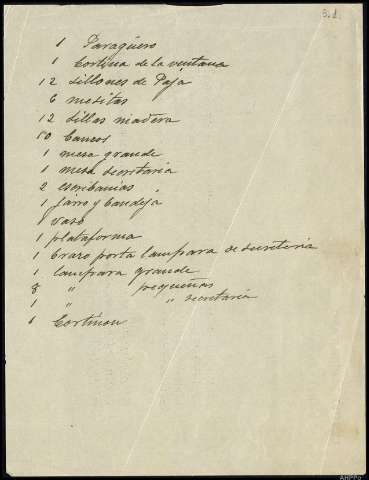 3.1.
1 Paragüero
1 Cortina de la ventana
12 sillones de Paja
6 mesitas
12 sillas madera
50 bancos
1 mesa grande
1 mesa secretaria
2 escribanias
1 Jarro y bandeja
1 vaso
1 plataforma
1 brazo porta lampara de secreteria
1 lampara grande
8 " pequeñas
1 " " secretaria
6 Cortinon
AHPPo